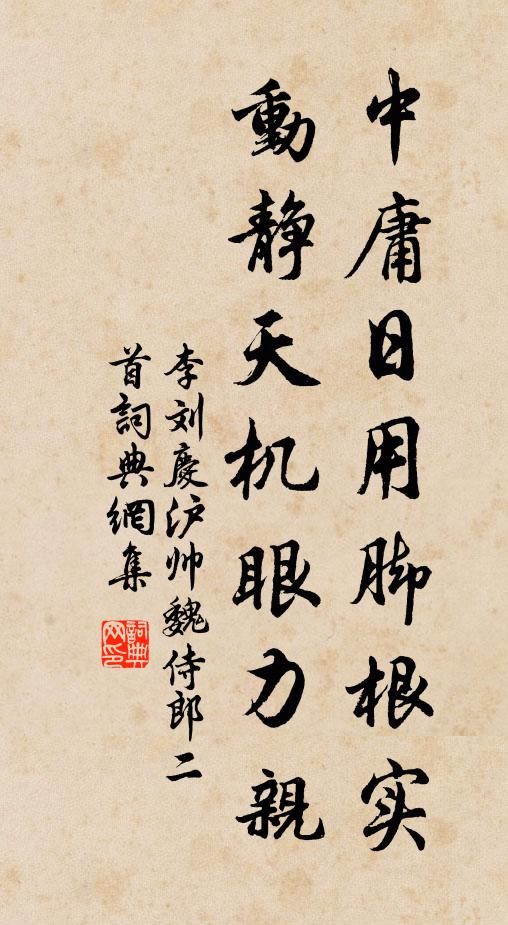 中庸日用脚根实
動静天机眼力親
李刘慶沪帅魏侍郎二
首詞典網集
詞典
网印